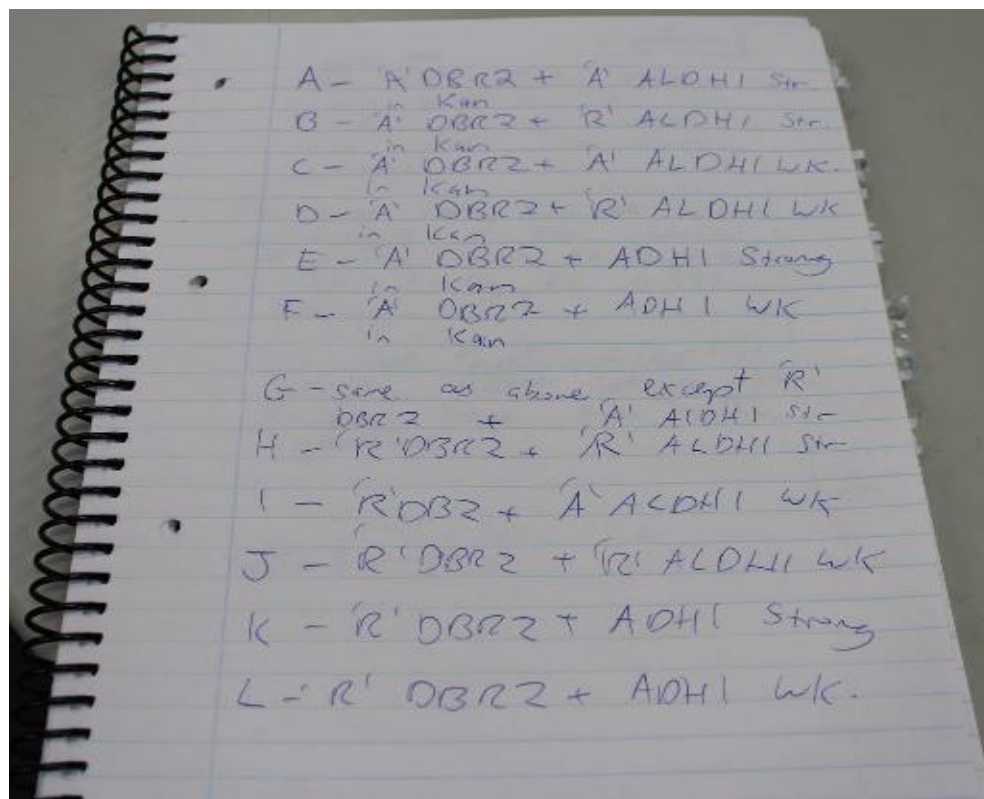 A - 'A' DBR2 + 'A' ALDH1 Str.
in Kan
B - 'A' DBR2 + 'R' ALDH1 Str.
in Kan
C - 'A' DBR2 + 'A' ALDH1 WK.
in Kan
D - 'A' DBR2 + 'R' ALDH1 WK
in Kan
E - 'A' DBR2 + ADH1 Strong
in Kan
F - 'A' DBR2 + ADH1 WK
in Kan
G - same as above except 'R'
DBR2 + 'A' ALDH1 Str
H - 'R' DBR2 + 'R' ALDH1 Str
I - 'R' DB2 + 'A' ALDH1 WK
J - 'R' DBR2 + 'R' ALDH1 WK
K - 'R' DBR2 + ADH1 Strong
L - 'R' DBR2 + ADH1 WK.